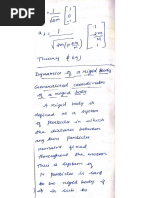 = 1/√2m [ 1 0 -1 ]
a₃ = 1/√2m(1+2m/M) [ 1 2m/M 1 ]
Theory & Eqn
Dynamics of a rigid body
Generalised coordinates
of a rigid body
A rigid body is
defined as a system
of particles in which
the distance between
any two particles
remains fixed
throughout the motion
Thus a system of
N particles is said
to be rigid body if
it is sub to